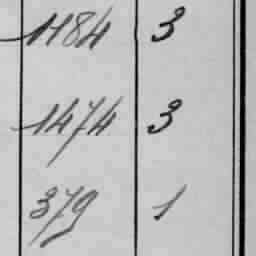 1184 3
1474 3
379 1